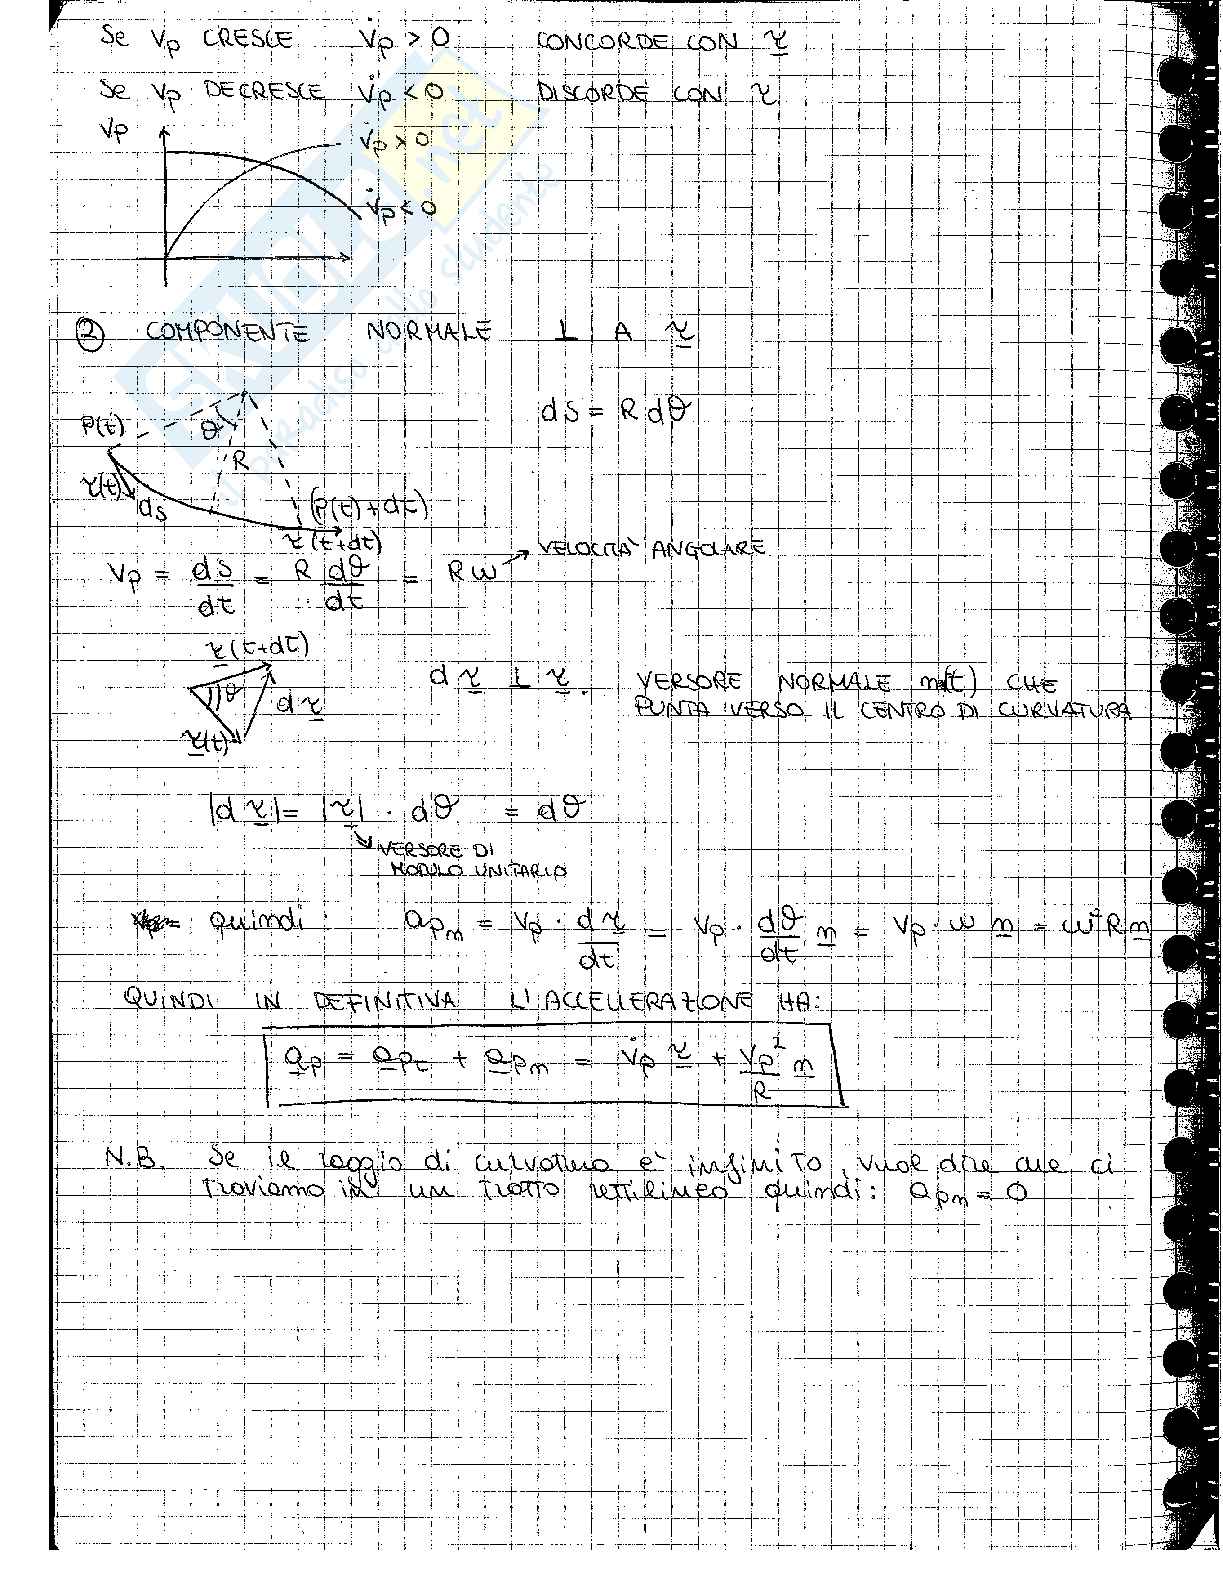 Se Vp CRESCE V̇p > 0 CONCORDE CON τ
Se Vp DECRESCE V̇p < 0 DISCORDE CON τ
Vp
V̇p > 0
V̇p < 0
② COMPONENTE NORMALE ⊥ A τ
dS = R dϑ
P(t)
ϑ
R
τ(t)
ds
(P(t)+dt)
τ(t+dt)
Vp = dS/dt = R dϑ/dt = Rω → VELOCITÀ ANGOLARE
τ(t+dt)
dϑ
dτ
τ(t)
dτ ⊥ τ. VERSORE NORMALE n(t) CHE
PUNTA VERSO IL CENTRO DI CURVATURA
|dτ| = |τ| · dϑ = dϑ
VERSORE DI
MODULO UNITARIO
quindi: apn = Vp · dτ/dt = Vp · dϑ/dt n = Vp · ω n = ω²R n
QUINDI IN DEFINITIVA L'ACCELLERAZIONE HA:
ap = apt + apn = V̇p τ + Vp²/R n
N.B. Se il raggio di curvatura è infinito, vuol dire che ci
troviamo in un tratto rettilineo quindi: apn = 0
skuola.net